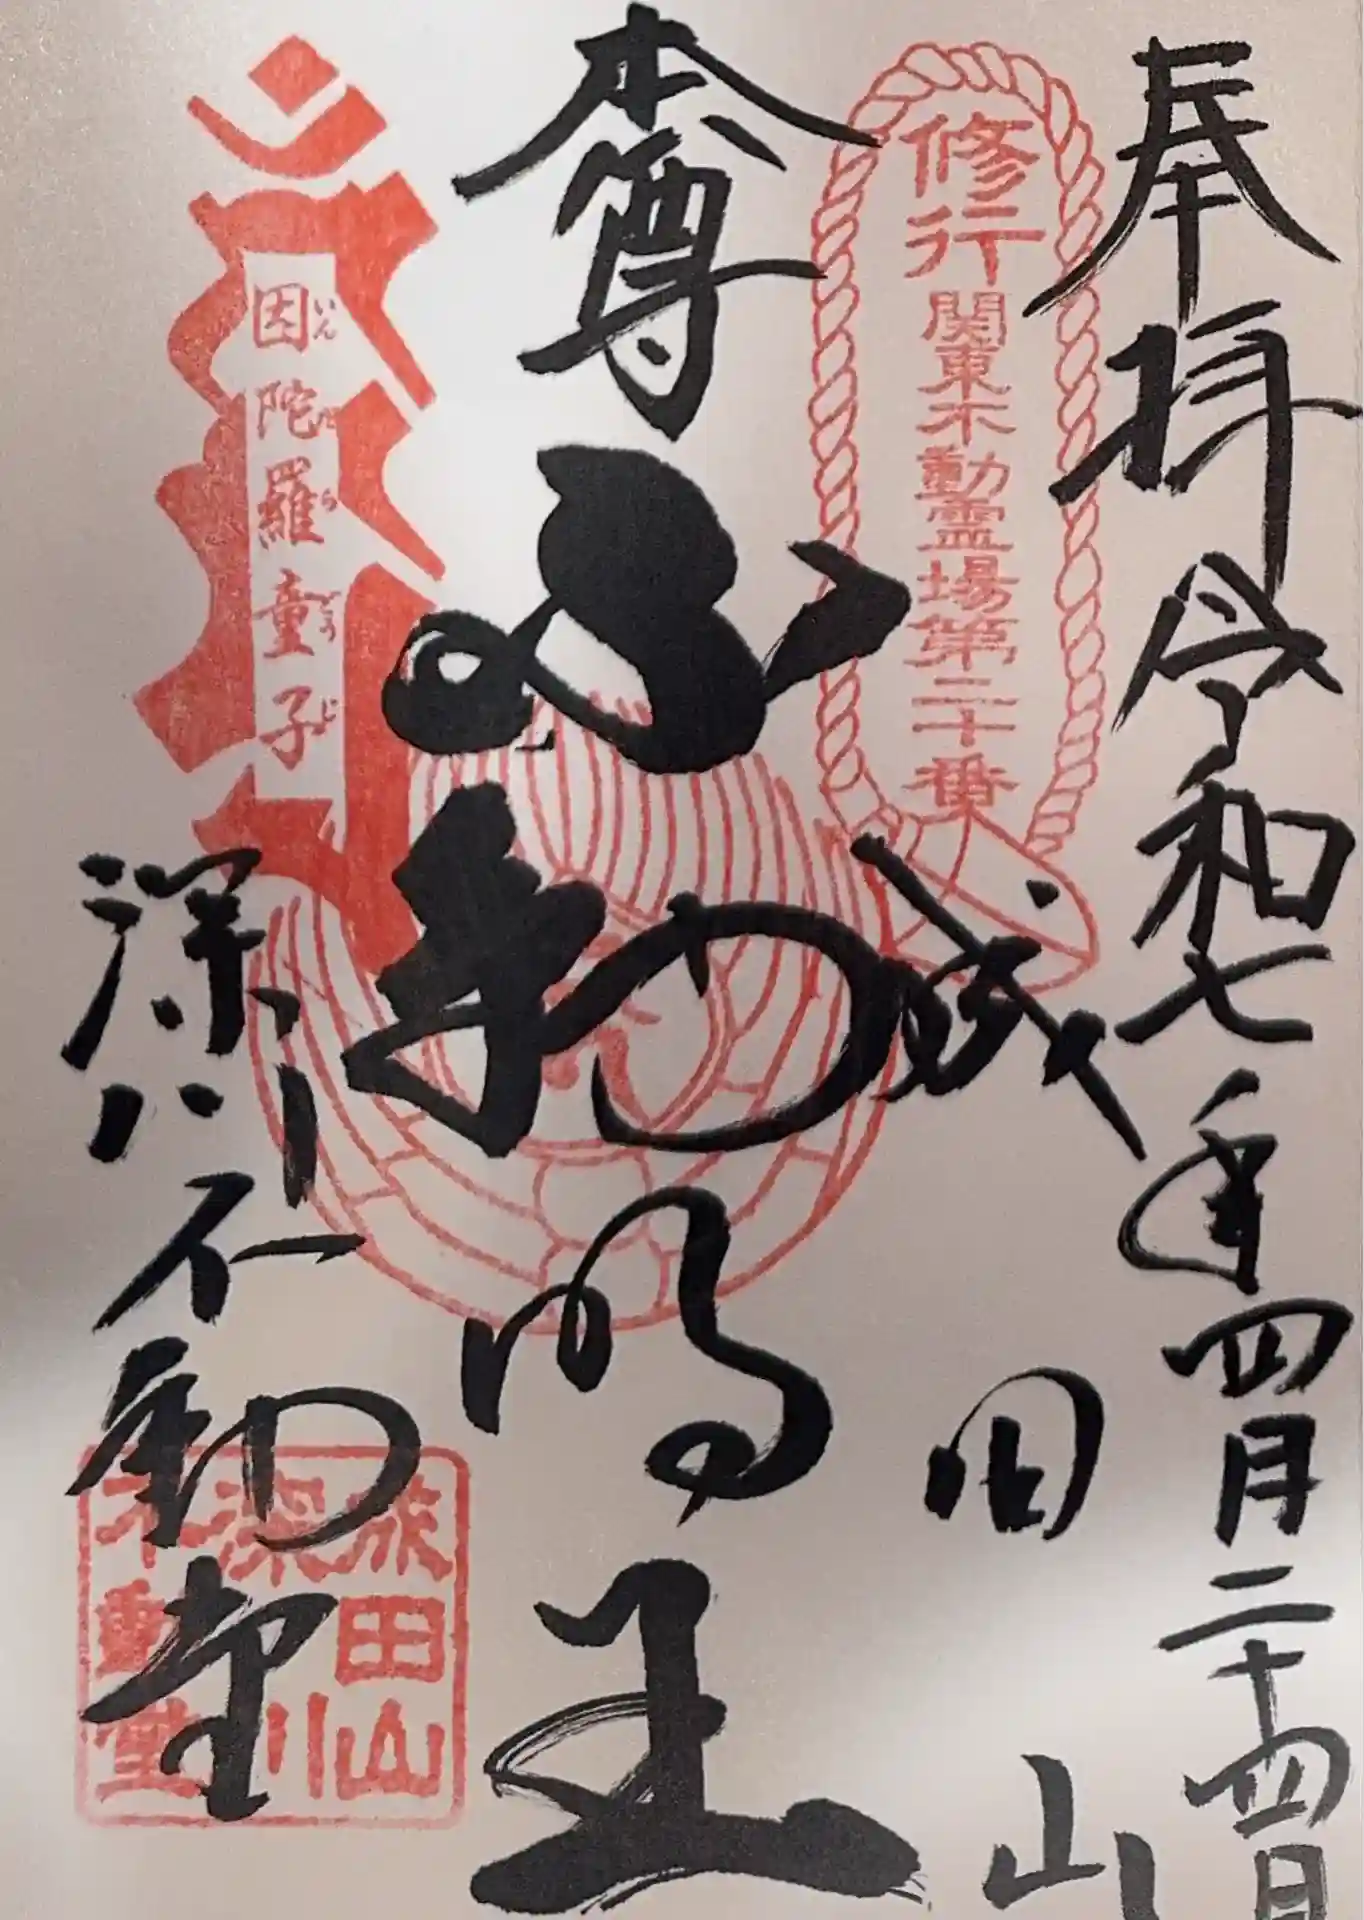 奉拝
令和七年四月二十四日
修行
関東不動霊場第二十番
成田山
本尊
不動明王
因陀羅童子
いんだらどうじ
深川不動堂
成田山
深川
不動堂